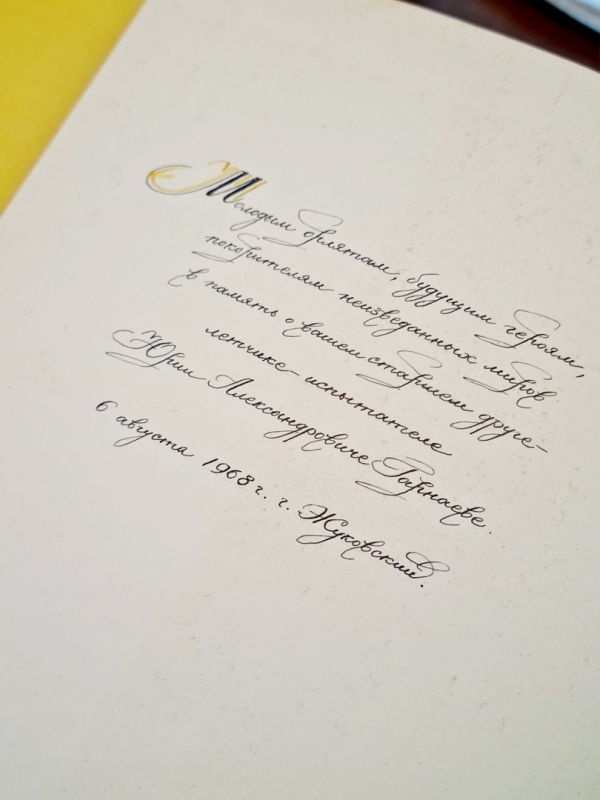 Молодым орлятам, будущим героям,
покорителям неизведанных миров
в память о вашем старшем друге-
летчике-испытателе
Юрии Александровиче Гарнаеве.
6 августа 1968 г. г. Жуковский.